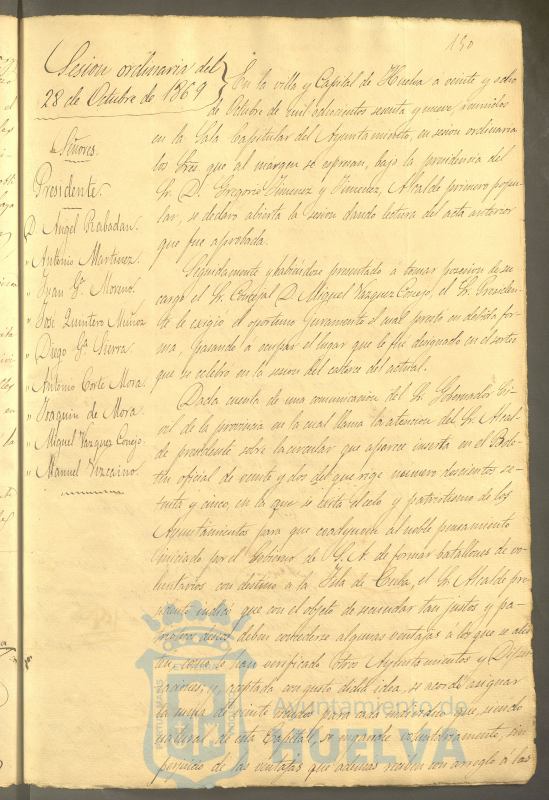 150
Sesion ordinaria del
28 de Octubre de 1869
Señores.
Presidente.
D. Angel Rabadan.
" Antonio Martinez.
" Juan Ga. Moreno.
" José Quintero Muñoz
" Diego Ga. Sierra.
" Antonio Corte Mora.
" Joaquin de Mora.
" Miguel Vazquez Conejo.
" Manuel Vizcaino.
En la villa y Capital de Huelva a veinte y ocho
de Octubre de mil ochocientos sesenta y nueve, reunidos
en la Sala Capitular del Ayuntamiento, en sesion ordinaria
los Sres. que al margen se espresan, bajo la presidencia del
Sr. D. Gregorio Jimenez y Jimenez, Alcalde primero popu-
lar, se declaro abierta la sesion dando lectura del acta anterior
que fue aprobada.
Seguidamente y habiendose presentado á tomar posesion de su
cargo el Sr. Concejal D. Miguel Vazquez Conejo, el Sr. Presiden-
te le exigió el oportuno juramento el cual prestó en debida for-
ma, pasando a ocupar el lugar que le fue designado en el sorteo
que se celebró en la sesion del catorce del actual.
Dada cuenta de una comunicacion del Sr. Gobernador Ci-
vil de la provincia en la cual llama la atencion del Sr. Alcal-
de presidente sobre la circular que aparece inserta en el Bole-
tin oficial de veinte y dos del que rige numero doscientos se-
tenta y cinco, en la que se escita el celo y patriotismo de los
Ayuntamientos para que coadyuven al noble pensamiento
iniciado por el Gobierno de S. A. de formar batallones de vo-
luntarios con destino a la Isla de Cuba, el Sr. Alcalde pre-
sidente indicó que con el objeto de secundar tan justos y pa-
trioticos deseos deben concederse algunas ventajas a los que se alis-
ten, como lo han verificado otros Ayuntamientos y Diputa-
ciones, y, aceptada con gusto dicha idea, se acordó asignar
la suma de veinte escudos para cada individuo que, siendo
natural de esta Capital, se enganche voluntariamente, sin
perjuicio de las ventajas que ademas reciben con arreglo á las
Ayuntamiento de
HUELVA